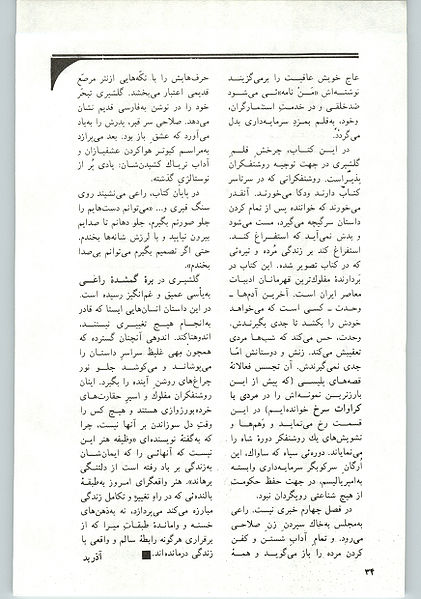 عاج خویش عافیت را برمی‌گزینند
نوشته‌اش «مَن‌ نامه»ئی می‌شود
ضدخلقی و در خدمت استثمارگران،
وخود، به‌قلم بمزدِ سرمایه‌داری بدل
می‌گردد.
در این کتاب، چرخشِ قلمِ
گلشیری در جهت توجیه روشنفکران
بذیراست. روشنفکرانی که در سرتاسر
کتاب دارند ودکا می‌خورند. آنقدر
می‌خورند که خواننده پس از تمام کردن
داستان سرگیجه می‌گیرد، مست می‌شود
و بدش نمی‌آید که استفراغ کند.
استفراغ کند بر زندگی مُرده و تیره‌ئی
که در کتاب تصویر شده. این کتاب در
بَردارندهٔ مفلوک‌ترین قهرمانان ادبیات
معاصر ایران است. آخرین آدم‌ها ـ
وحدت ـ کسی است که می‌خواهد
خودش را بکشد تا جدی بگیرندش.
وحدت، حس می‌کند که شب‌ها مردی
تعقیبش می‌کند. زنش و دوستانش امّا
جدی نمی‌گیرندش. آن تجسس فعالانهٔ
قصه‌های پلیسی (که پیش از این
بارزترین نمونه‌اش را در مردی با
کراوات سرخ خوانده‌ایم) در این
قسمت رخ می‌نماید و وَهم‌ها و
تشویش‌های یک روشنفکر دورهٔ شاه را
می‌نمایاند. دوره‌ئی سیاه که ساواک، این
ارگانِ سرکوبگر سرمایه‌داری وابسته
به‌امپریالیسم، در جهت حفظ حکومت
از هیچ شناعتی رویگردان نبود.
در فصل چهارم خبری نیست. راعی
به‌مجلس به‌خاک سپردن زنِ صلاحی
می‌رود. و تمام آداب شستن و کفن
کردن مرده را باز می‌گوید و همهٔ
حرف‌هایش را با تکّه‌هایی از‌نثر مرصّع
قدیمی اعتبار می‌بخشد. گلشیری تبحّر
خود را در نوشتن به‌فارسی قدیم نشان
می‌دهد. صلاحی سر قبر، پدرش را به‌یاد
می‌آورد که عشق باز بود. بعد می‌پردازد
به‌مراسم کبوتر هواکردن عشقبازان و
آداب تریاك کشیدن‌شان: یادی پُر از
نوستالژی گذشته.
در پایان کتاب، راعی می‌نشیند روی
سنگ قبری و... «می‌توانم دست‌هایم را
جلو صورتم بگیرم، جلو دهانم تا صدایم
بیرون نیایید و با لرزش شانه‌ها بخندم.
حتی اگر تصمیم بگیرم می‌توانم بی‌صدا
بخندم».
گلشیری در برهٔ گمشدهٔ راعی
به‌یأسی عمیق و غم‌انگیز رسیده است.
در این داستان انسان‌هایی ایستا که قادر
به‌انجام هیچ تغییری نیستند،
اندوهناکند. اندوهی آنچنان گسترده که
همچون مهی غلیظ سراسرِ داستان را
می‌پوشاند و می‌کوشد جلو نور
چراغ‌های روشن آینده را بگیرد. اینان
روشنفکران مفلوك و اسیر حقارت‌های
خرده‌بورژوازی هستند و هیچ کس را
وقتِ دل سوزاندن بر آنها نیست، چرا
که به‌گفتهٔ نویسنده‌ای «وظیفه هنر این
نیست که آنهائی را که ایمان‌شان
به‌زندگی بر باد رفته است از دلتنگی
برهاند». هنر واقعگرای امروز به‌طبقهٔ
بالنده‌ئی که در راه تغییر و تکامل زندگی
مبارزه می‌کند می‌پردازد، نه به‌ذهن‌های
خسته و واماندهٔ طبقات میرا که از
برقراری هرگونه رابطهٔ سالم و واقعی با
زندگی درمانده‌اند.
آذر بد
۳۴